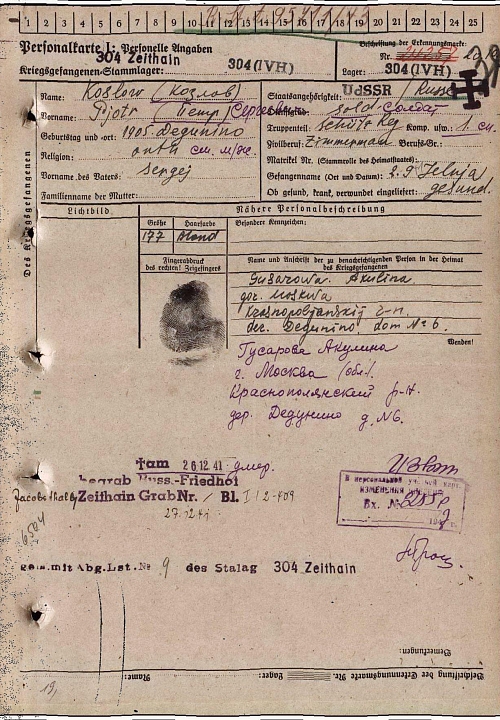 1 2 3 4 5 6 7 8 9 10 11 12 13 14 15 16 17 18 19 20 21 22 23 24 25
Personalkarte I: Personelle Angaben
Beschriftung der Erkennungsmarke:
304 Zeithain
Nr.
Kriegsgefangenen-Stammlager: 304 (IVH)
Lager: 304 (IVH)
Des Kriegsgefangenen
Name: Koslow (Козлов)
Staatsangehörigkeit: UdSSR / Russe
Vorname: Pjotr (Петр) Сергеевич
Dienstgrad: Sold. Солдат
Geburtstag und -ort: 1905. Degunino
Truppenteil: Schütz Reg Komp. usw.: 1. см.
Religion: orth см. м/ос.
Zivilberuf: Zimmermann Berufs-Gr.:
Matrikel Nr. (Stammrolle des Heimatstaates):
Vorname des Vaters: Sergej
Gefangennahme (Ort und Datum): 2.9 Jelnja
Familienname der Mutter:
Ob gesund, krank, verwundet eingeliefert: gesund.
Lichtbild
Nähere Personalbeschreibung
Größe Haarfarbe
Besondere Kennzeichen:
177 blond
Fingerabdruck
des rechten! Zeigefingers
Name und Anschrift der zu benachrichtigenden Person in der Heimat
des Kriegsgefangenen
Gusarowa Akulina
gor. Moskwa
Krasnopoljanskij r-n.
der. Degunino dom № 6.
Wenden!
Гусарова Акулина
г. Москва (обл.).
Краснополянский р-н.
дер. Дедунино д. №6.
†am 26.12.41 умер.
begrab Russ.-Friedhof
Jacobsthal by Zeithain Grab Nr. / Bl. I/2-409
27.12.41
6504
В персональной уч. бой карт.
ИЗМЕНЕНИЯ
Вх. №
194
gem. mit Abg.Lst. № 9 des Stalag 304 Zeithain
Bemerkungen:
Beschriftung der Erkennungsmarke Nr.
Lager:
Name:
19,